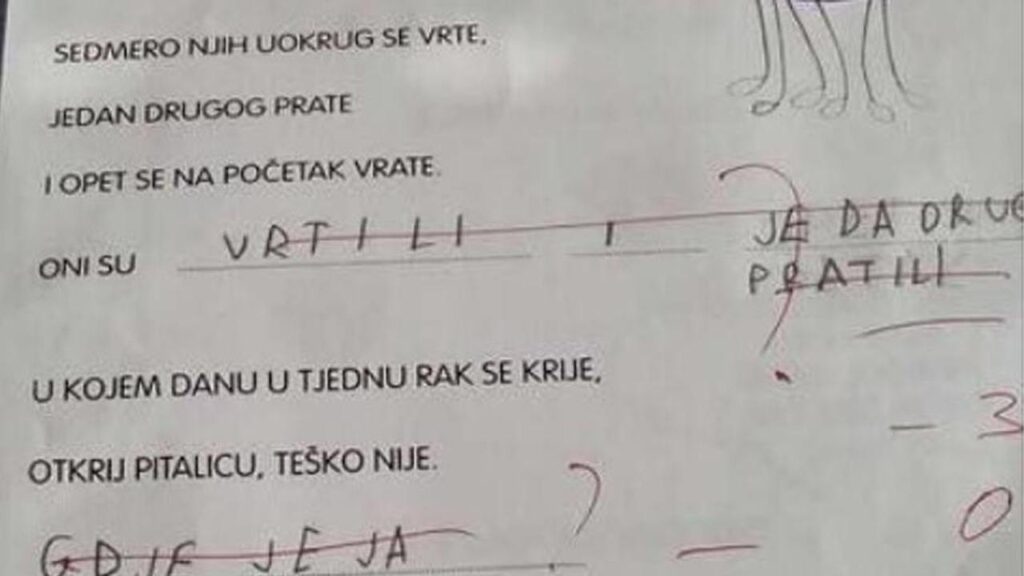 SEDMERO NJIH UOKRUG SE VRTE,
JEDAN DRUGOG PRATE
I OPET SE NA POČETAK VRATE.
ONI SU VRTILI I JE DA DRUG
PRATILI
U KOJEM DANU U TJEDNU RAK SE KRIJE,
- 3
OTKRIJ PITALICU, TEŠKO NIJE.
GDJE JE JA
- 0